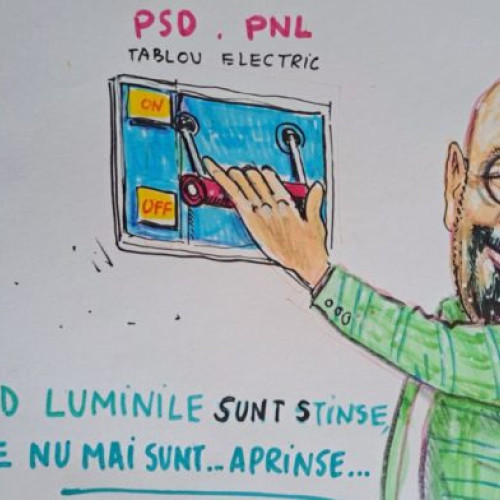 PSD . PNL
TABLOU ELECTRIC
ON
OFF
D LUMINILE SUNT STINSE,
E NU MAI SUNT... APRINSE...